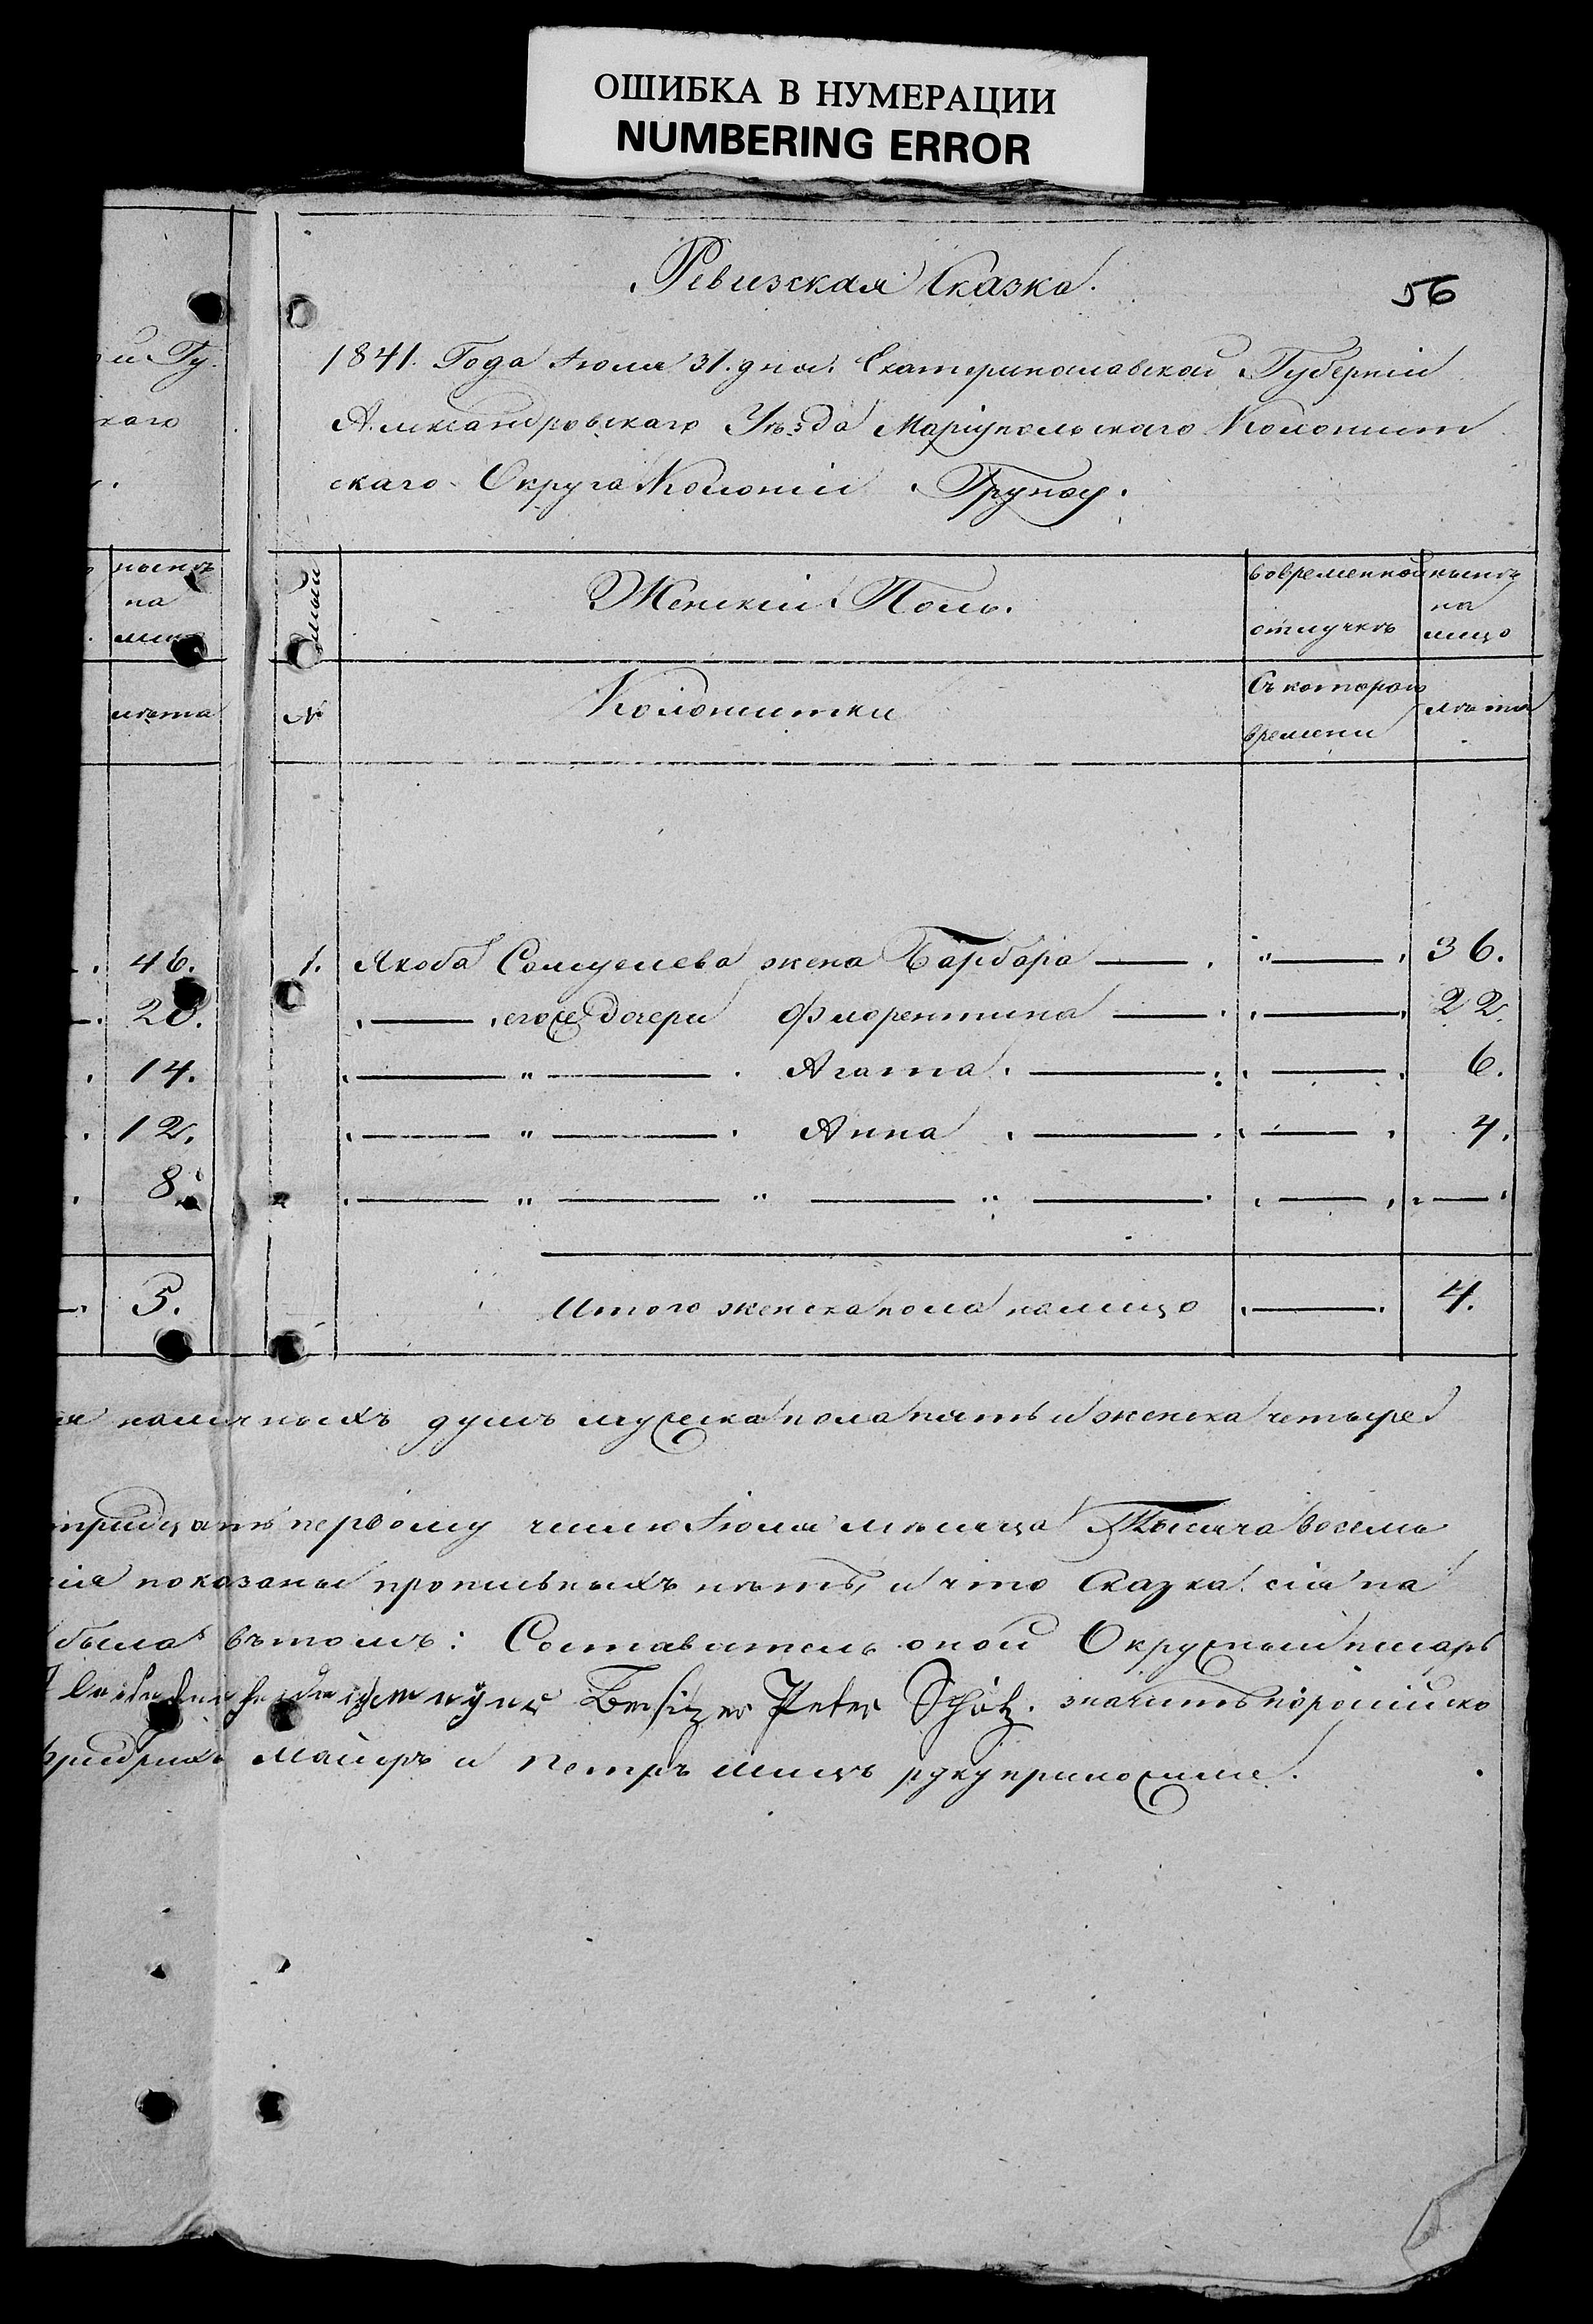 ОШИБКА В НУМЕРАЦИИ
NUMBERING ERROR
Ревизская Сказка.
56
1841. Года Іюля 31. дня. Екатеринославской Губерніи
Александровскаго Уѣзда Маріупольскаго Колонист
скаго Округа Колоніи Грунау.
и Гу.
каго
нынѣ
на
лѣта
Женскій Полъ.
вовременной
отлучкѣ
нынѣ
на
лицо
№
Колонистки
Съ котораго
времени
лѣта
46.
1. Якоба Самуелева жена Барбара 36.
20.
его же дочери Флорентина 22
14.
" Агата. 6.
12.
" Анна 4.
8.
5.
Итого женска пола на лицо 4.
наличныхъ душъ мужеска пола пять и женска четыре
тридцать первому числю Іюля мѣсяца Тысяча восемь
показаны прописныхъ нѣтъ, и что Сказка сія на
была вътомъ: Составитель оной Окружный писарь
Beisitzer Peter Schötz. значитъ пороссійско
Фридрихъ Майеръ и Петръ Шицъ руку приложили.